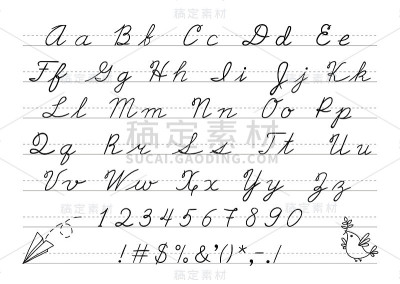 Aa Bb Cc Dd Ee
Ff Gg Hh Ii Jj Kk
Ll Mm Nn Oo Pp
Qq Rr Ss Tt Uu
Vv Ww Xx Yy Zz
1234567890
!#$%&'()*,-./
搞定素材
SUCAI.GAODING.COM